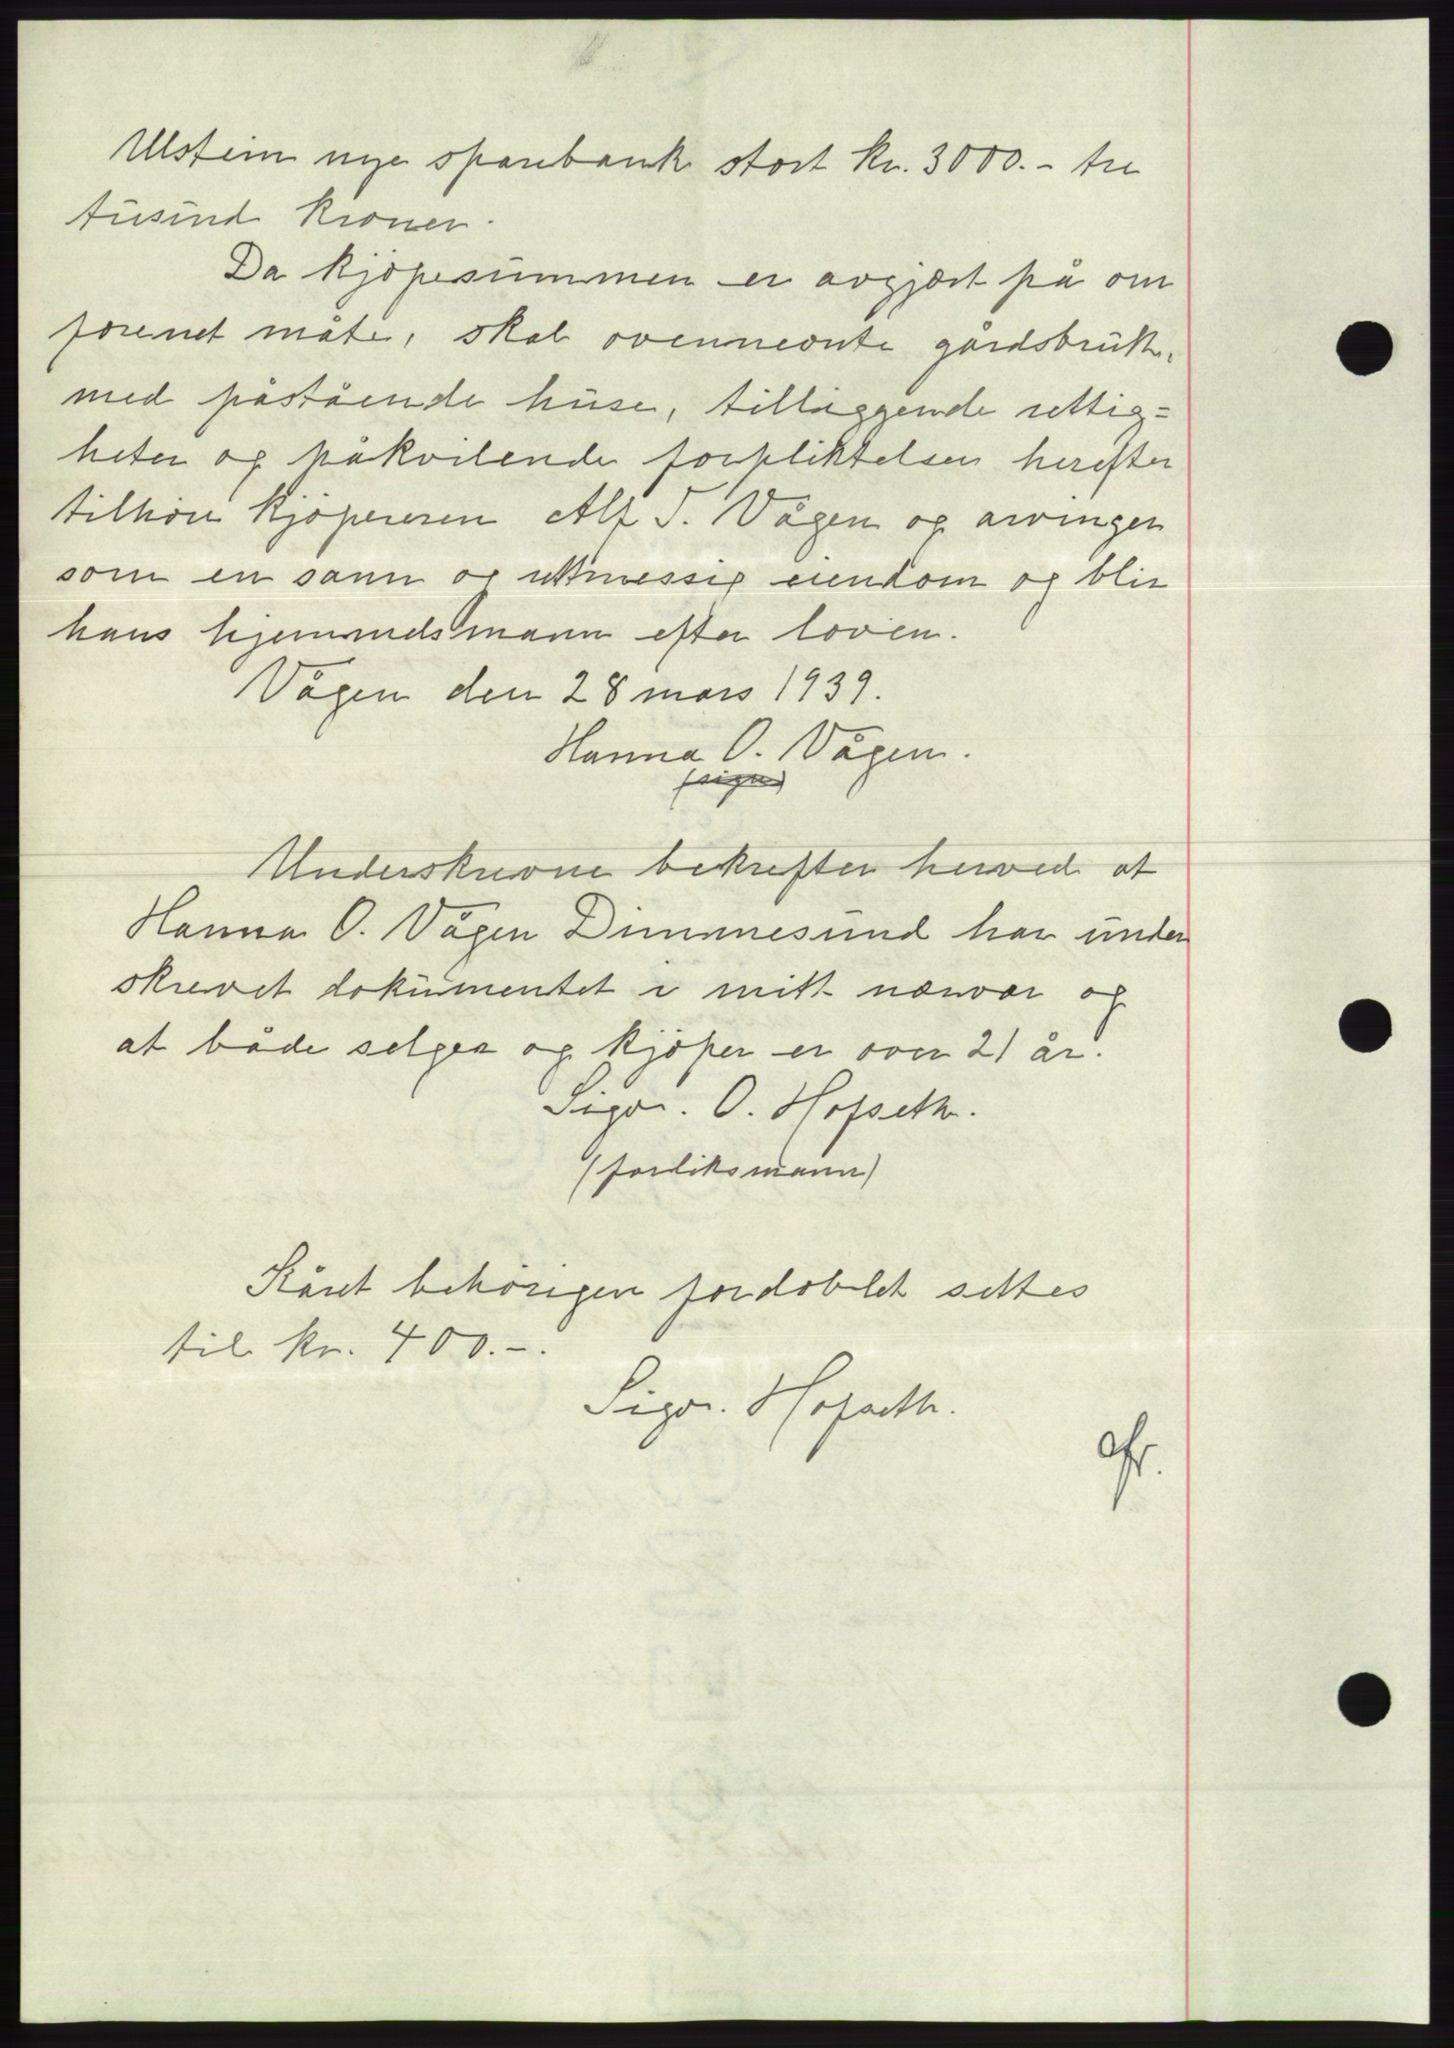 Ulstein nye sparebank stort kr. 3000.- tre
tusind kroner.
Da kjøpesummen er avgjort på om
forenet måte, skal ovennevnte gårdsbruk,
med påstående huse, tilliggende rettig=
heter og påkvilende forpliktelser herefter
tilhøre kjøpereren Alf T. Vågen og arvinger
som en sann og rettmessig eiendom og blir
hans hjemmelsmann efter loven.
Vågen den 28 mars 1939.
Hanna O. Vågen.
(sign)
Underskrevne bekrefter herved at
Hanna O. Vågen Dimmesund har under
skrevet dokumentet i mitt nærvær og
at både selger og kjøper er over 21 år.
Sigv. O. Hofseth.
(forliksmann)
Kåret behørigen fordoblet settes
til kr. 400.-.
Sigv. Hofseth.